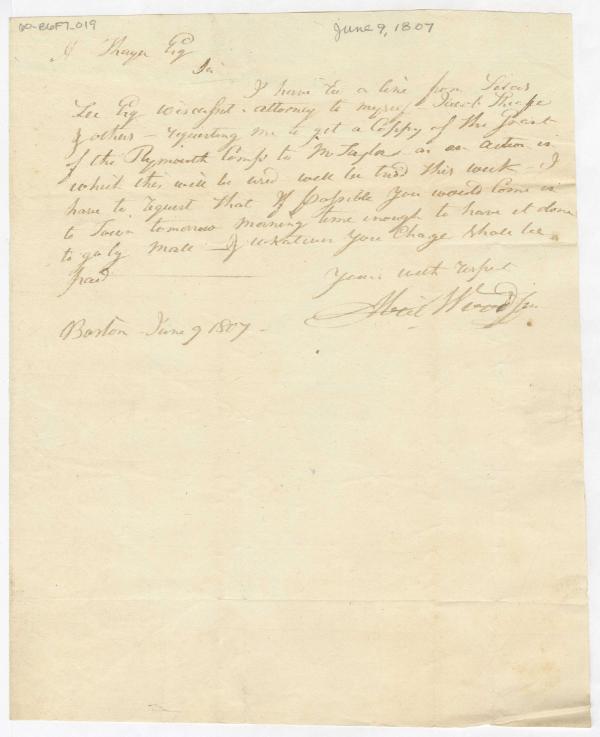 60-B6F7-019
June 9, 1807
A Thayer Esq
Sir
I have to a line from Silas
Lee Esq Wiscasset - attorney to myself Jacob
& others - requesting me to get a Coppy of the Grant
of the Plymouth Comp to Mr Taylor as an action in
which this will be used will be tried this week - I
have to request that If Possible You would Come in
to Town tomorrow morning time enough to have it done
to go by Male - & whatever You Charge Shall be
paid
Yours with respet
Abiel Wood Jun
Boston June 9 1807 -